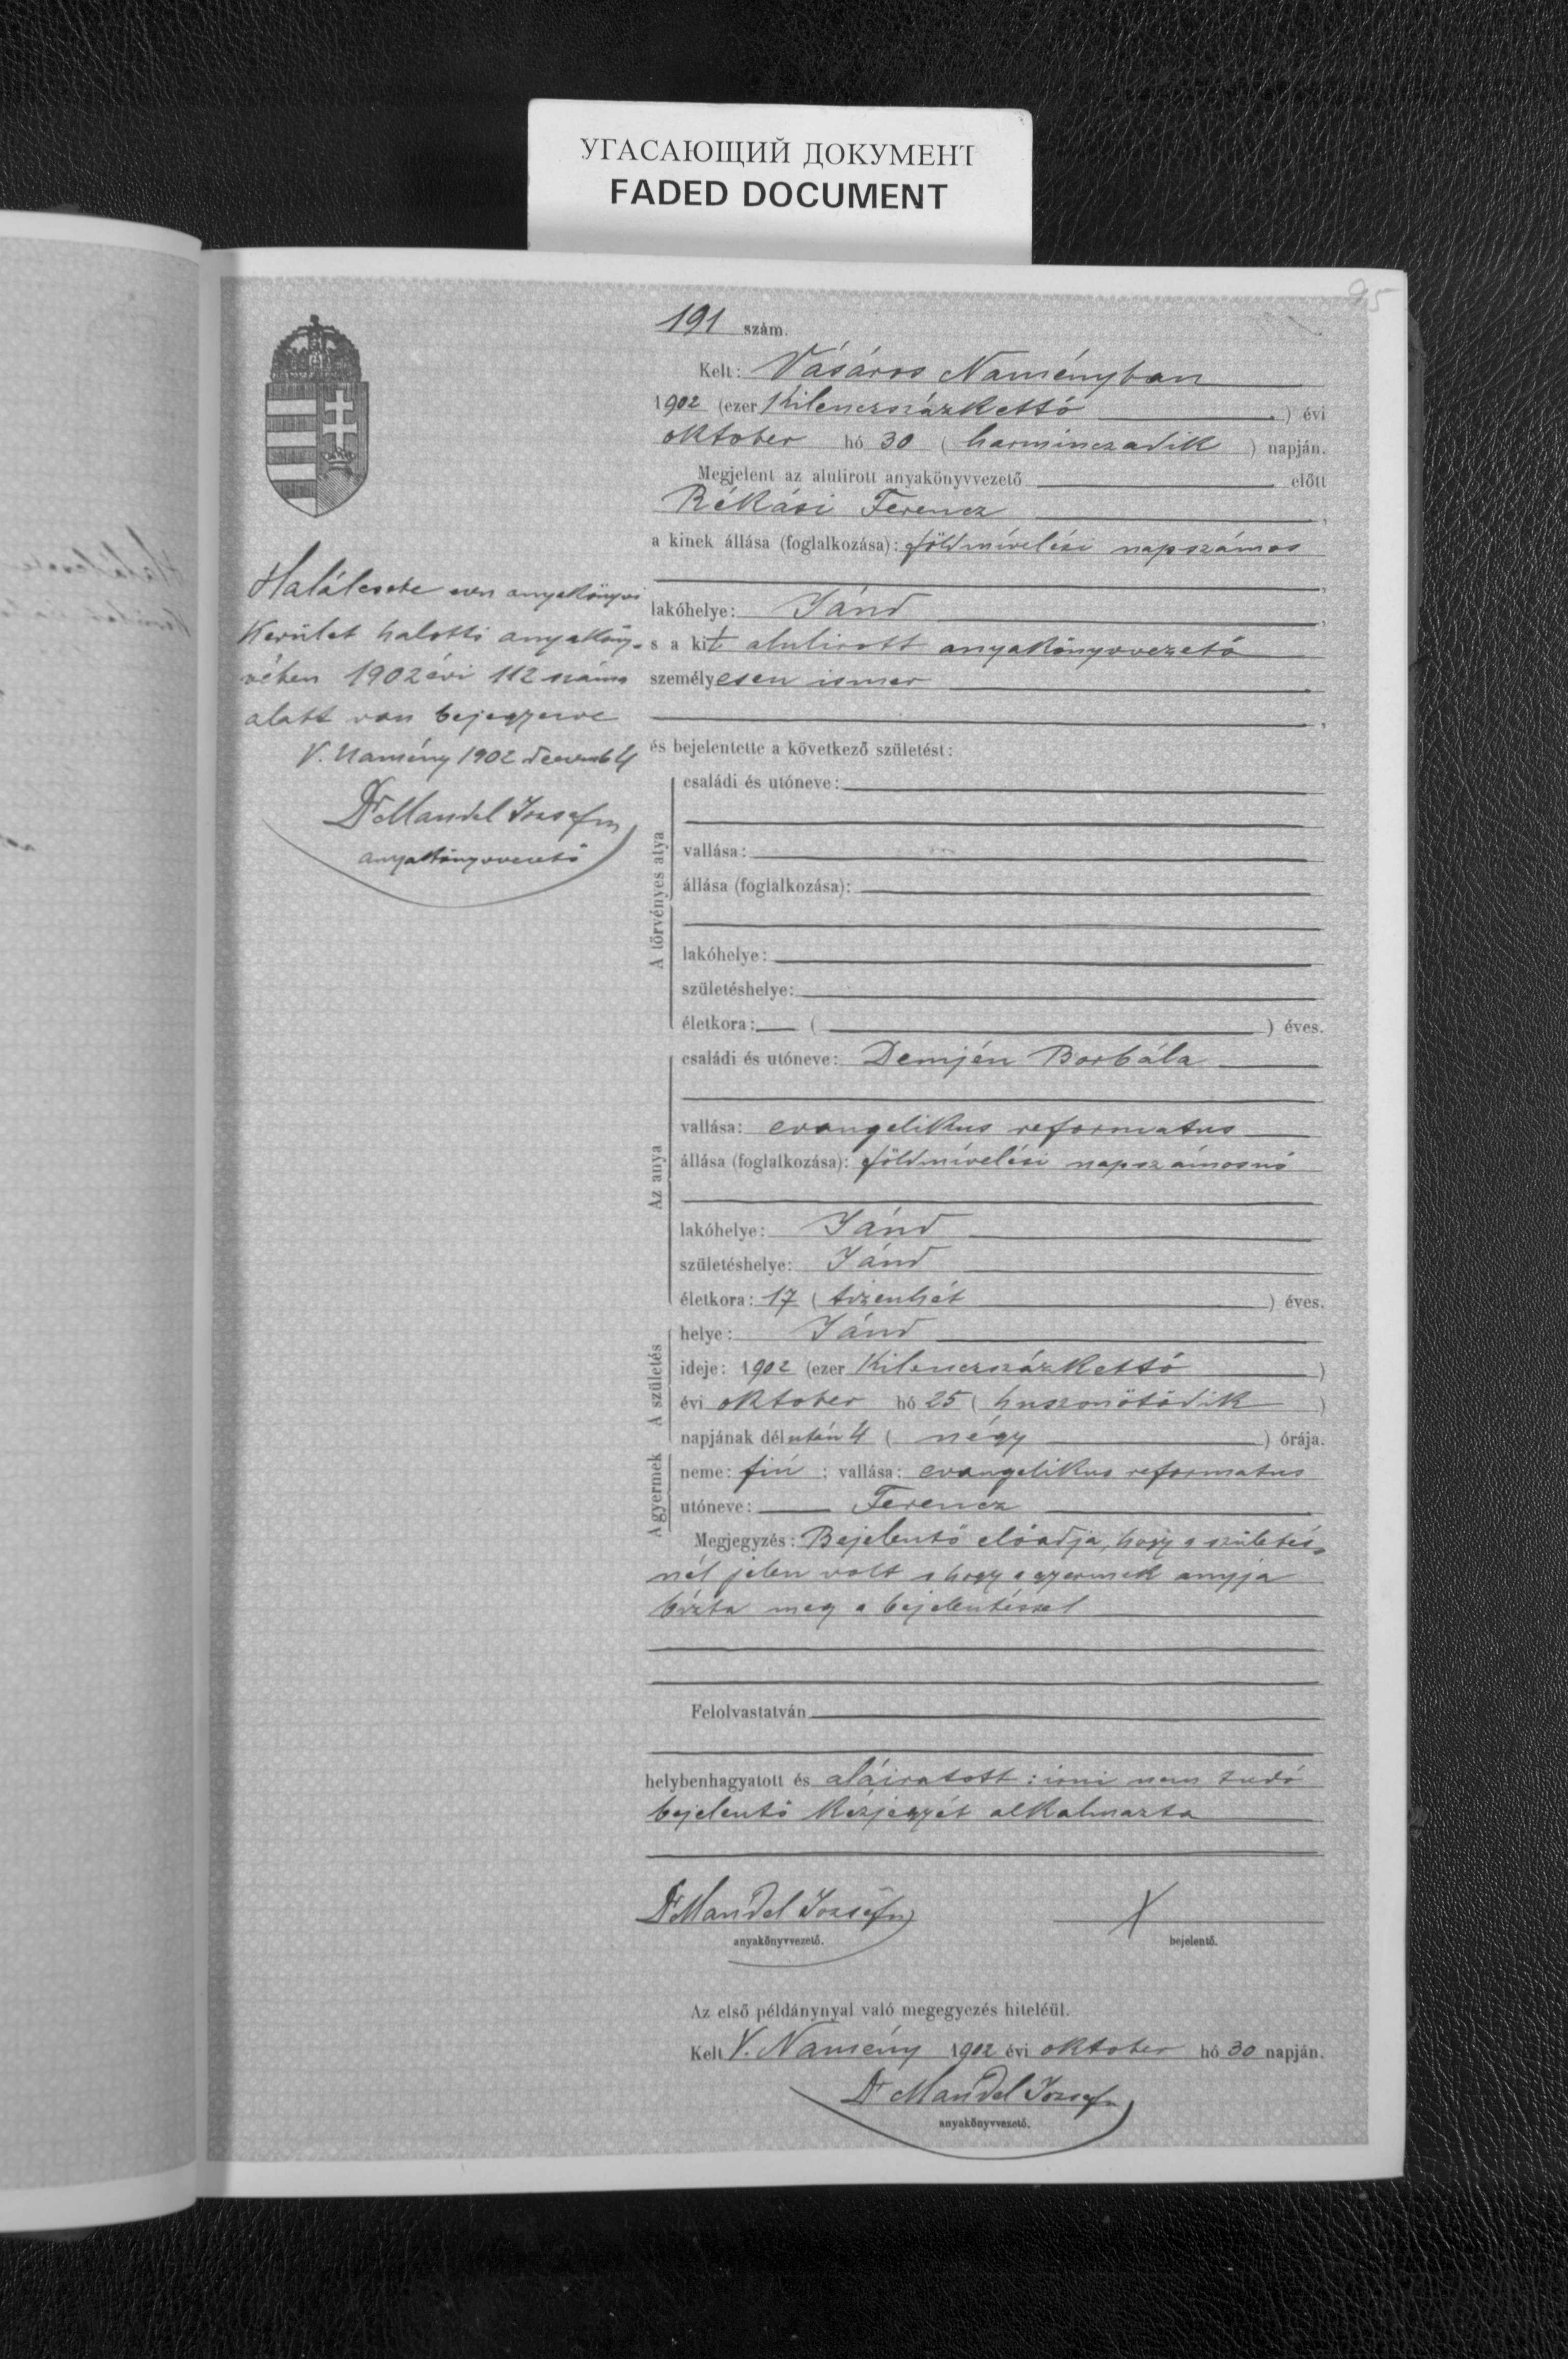 УГАСАЮЩИЙ ДОКУМЕНТ
FADED DOCUMENT
95
191 szám.
Kelt: Vásáros Naményban
1902 (ezer kilenczszázkettő) évi
oktober hó 30 (harminczadik) napján.
Megjelent az alulirott anyakönyvvezető előtt
Rékási Ferencz,
a kinek állása (foglalkozása): földmívelési napszámos
lakóhelye: Jánd,
s a kit alulirott anyakönyvvezető
személyesen ismer
és bejelentette a következő születést:
A törvényes atya
családi és utóneve:
vallása:
állása (foglalkozása):
lakóhelye:
születéshelye:
életkora: ( ) éves.
Az anya
családi és utóneve: Demjén Borbála
vallása: evangelikus reformatus
állása (foglalkozása): földmívelési napszámosnő
lakóhelye: Jánd
születéshelye: Jánd
életkora: 17 (tizenhét) éves.
A születés
helye: Jánd
ideje: 1902 (ezer kilenczszázkettő)
évi oktober hó 25 (huszonötödik)
napjának délután 4 (négy) órája.
A gyermek
neme: fiú; vallása: evangelikus reformatus
utóneve: Ferencz
Megjegyzés: Bejelentő előadja, hogy a születés-
nél jelen volt s hogy a gyermek anyja
bízta meg a bejelentéssel
Felolvastatván
helybenhagyatott és aláiratott: irni nem tudó
bejelentő kézjegyét alkalmazta
Dr Mandel József
anyakönyvvezető.
X
bejelentő.
Az első példánynyal való megegyezés hiteléül.
Kelt V. Namény 1902 évi oktober hó 30 napján.
Dr Mandel József
anyakönyvvezető.
Halálesete ezen anyakönyvi
kerület halotti anyaköny-
vében 1902 évi 112 száma
alatt van bejegyezve
V. Namény 1902 decemb 4
Dr Mandel József
anyakönyvvezető